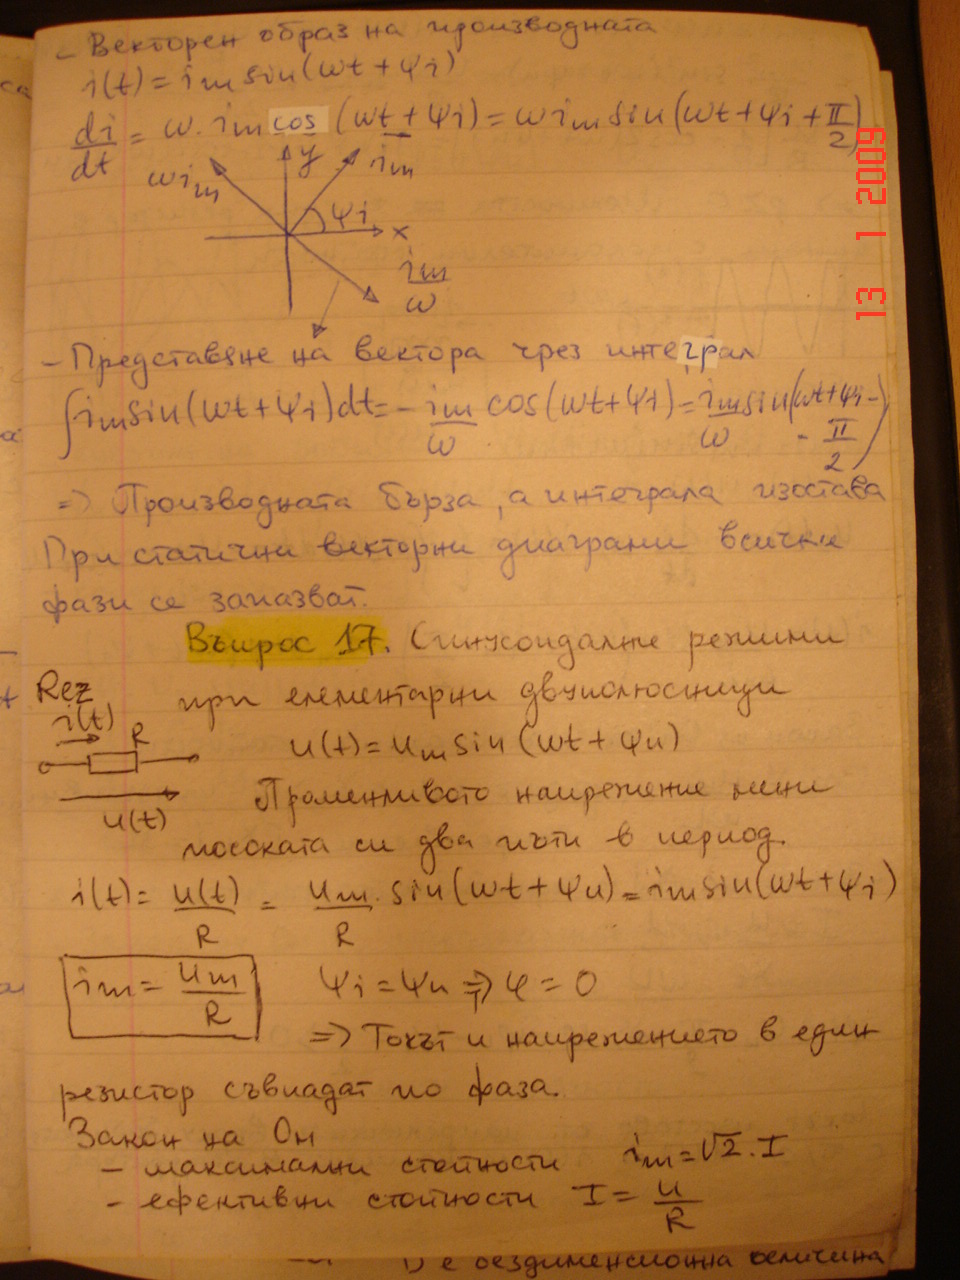 - Векторен образ на производната
i(t) = im sin(ωt + ψi)
di/dt = ω. im cos (ωt + ψi) = ω im sin(ωt + ψi + π/2)
ωim y im
ψi x
im/ω
13 1 2009
- Представяне на вектора чрез интеграл
∫im sin(ωt + ψi)dt = - im/ω cos(ωt + ψi) = im/ω sin(ωt + ψi -
- π/2)
=> Производната бърза, а интеграла изостава
При статични векторни диаграми всички
фази се запазват.
Въпрос 17. Синусоидални режими
при елементарни двуполюсници
Rez
i(t)
R
u(t) = um sin (ωt + ψu)
u(t)
Променливото напрежение мени
посоката си два пъти в период.
i(t) = u(t)/R = um/R . sin (ωt + ψu) = im sin(ωt + ψi)
im = um/R ψi = ψu => φ = 0
=> Токът и напрежението в един
резистор съвпадат по фаза.
Закон на Ом
- максимални стойности im = √2 . I
- ефективни стойности I = u/R
е бездименсионна величина